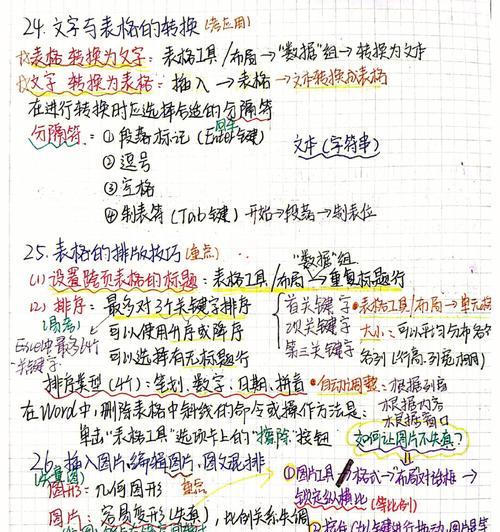 24.文字与表格的转换(考应用)
找表格 转换为文字：表格工具/布局→"数据"组→转换为文本
找文字 转换为表格：插入→表格→文本转换成表格
在进行转换时应选择合适的分隔符
分隔符：①段落标记(Enter键) 回车 文本(字符串)
②逗号
③空格
④制表符(Tab键) 开始→段落→制表位
25.表格的排版技巧(重点) "数据"组
(1)设置跨页表格的标题：表格工具/布局→重复标题行
(2)排序：最多对3个关键字排序 首关键字 •表格工具/布局→单元格
(易考) 可以使用升序或降序 次关键字 大小：可以平均分布各行
Excel中最多64个关键字 可以选择有无标题行 第三关键字 各列(行高、列宽相同)
排序类型(4个)：笔划、数字、日期、拼音 •自动调整：根据列宽
根据内容
在Word中,删除表格中斜线的命令或操作方法是： 根据窗口
单击"表格工具"选项卡上的"擦除"按钮 如何让图片不失真？
26.插入图片、编辑图片、图文混排 ①图片工具→格式→布局对话框→
图形：几何图形 重点 锁定纵横比(等比例)
图片：容易变形(失真),比例关系失调